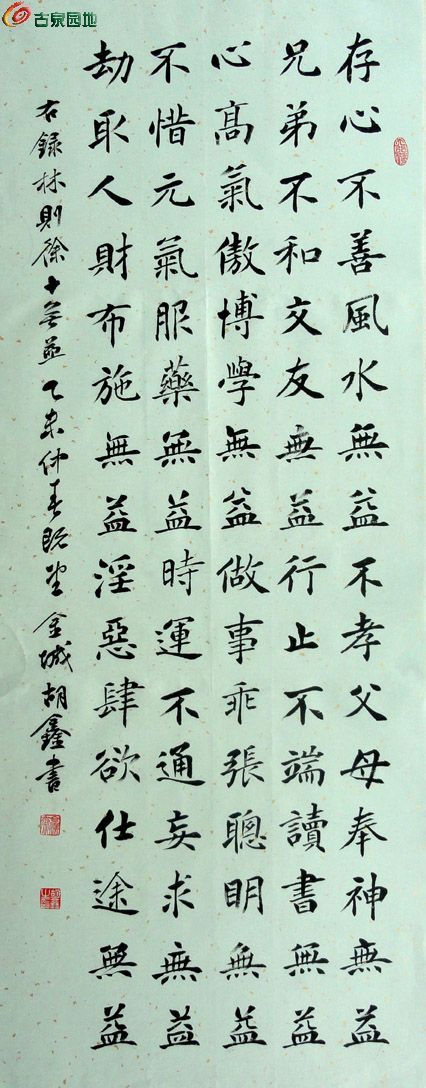 古泉园地
存心不善風水無益不孝父母奉神無益
兄弟不和交友無益行止不端讀書無益
心髙氣傲博學無益做事乖張聰明無益
不惜元氣服藥無益時運不通妄求無益
劫取人財布施無益淫惡肆欲仕途無益
右録林則徐十無益乙未仲春既望金城胡鑫書